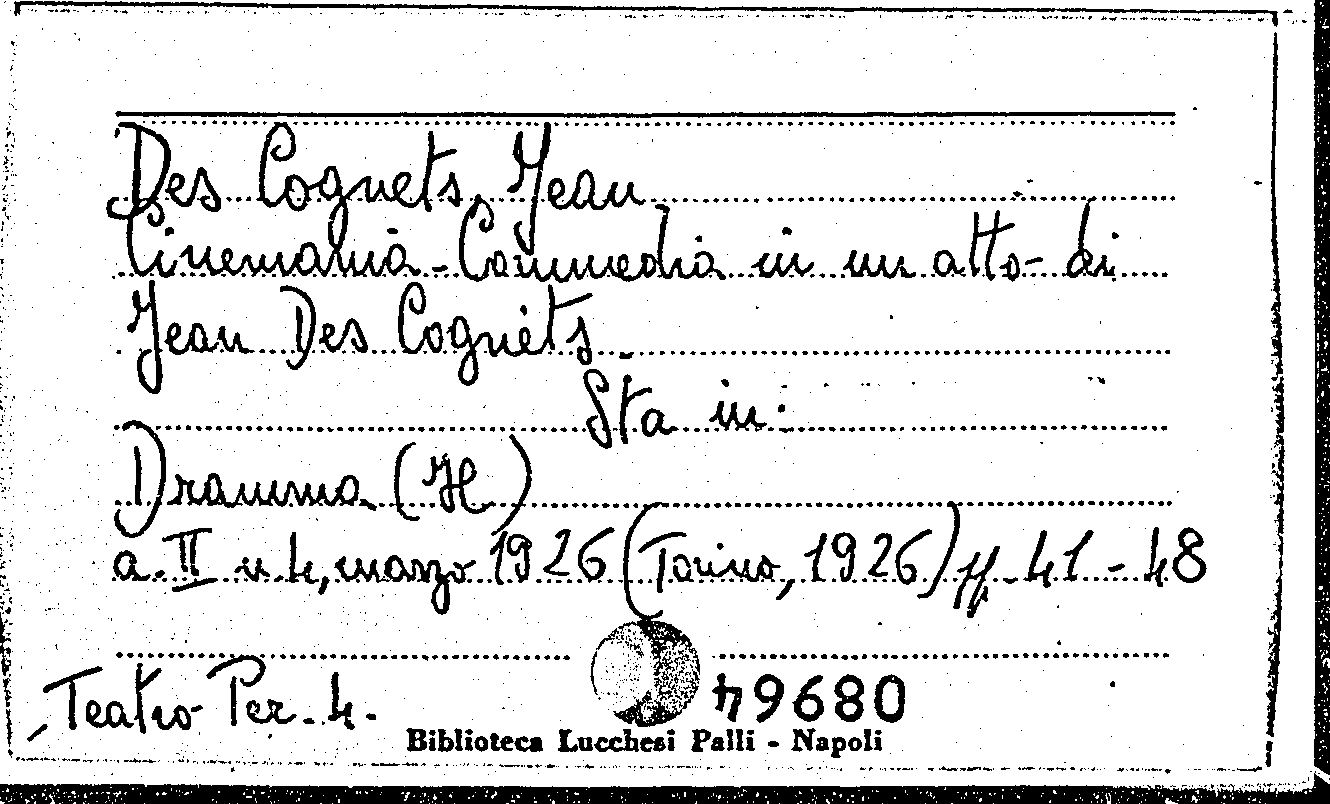 Des Cognets, Jean
Cinemania - Commedia in un atto - di
Jean Des Cognets.
Sta in:
Dramma (Il)
a. II n. 4, marzo 1926 (Torino, 1926) pp. 41 - 48
Teatro Per. 4.
49680
Biblioteca Lucchesi Palli - Napoli